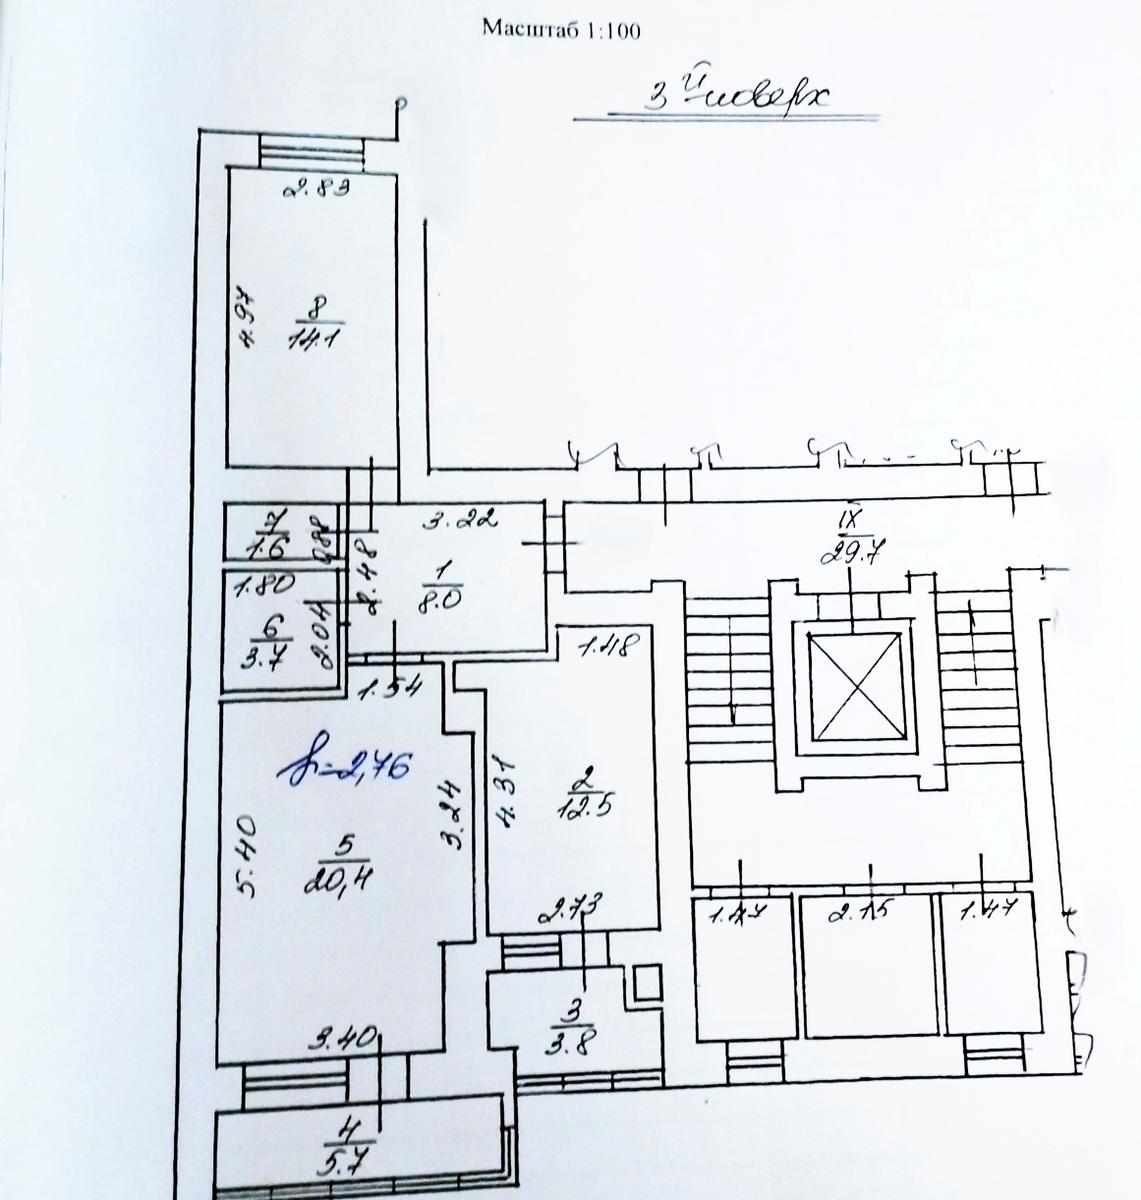 Масштаб 1:100
3й поверх
2.83
4.97
8
14.1
7
1.6
0.88
3.22
IX
29.7
2.48
1
8.0
1.80
6
3.7
2.04
1.48
1.54
h=2,76
4.31
2
12.5
3.24
5.40
5
20,4
2.73
1.47
2.15
1.47
3
3.8
3.40
4
5.7